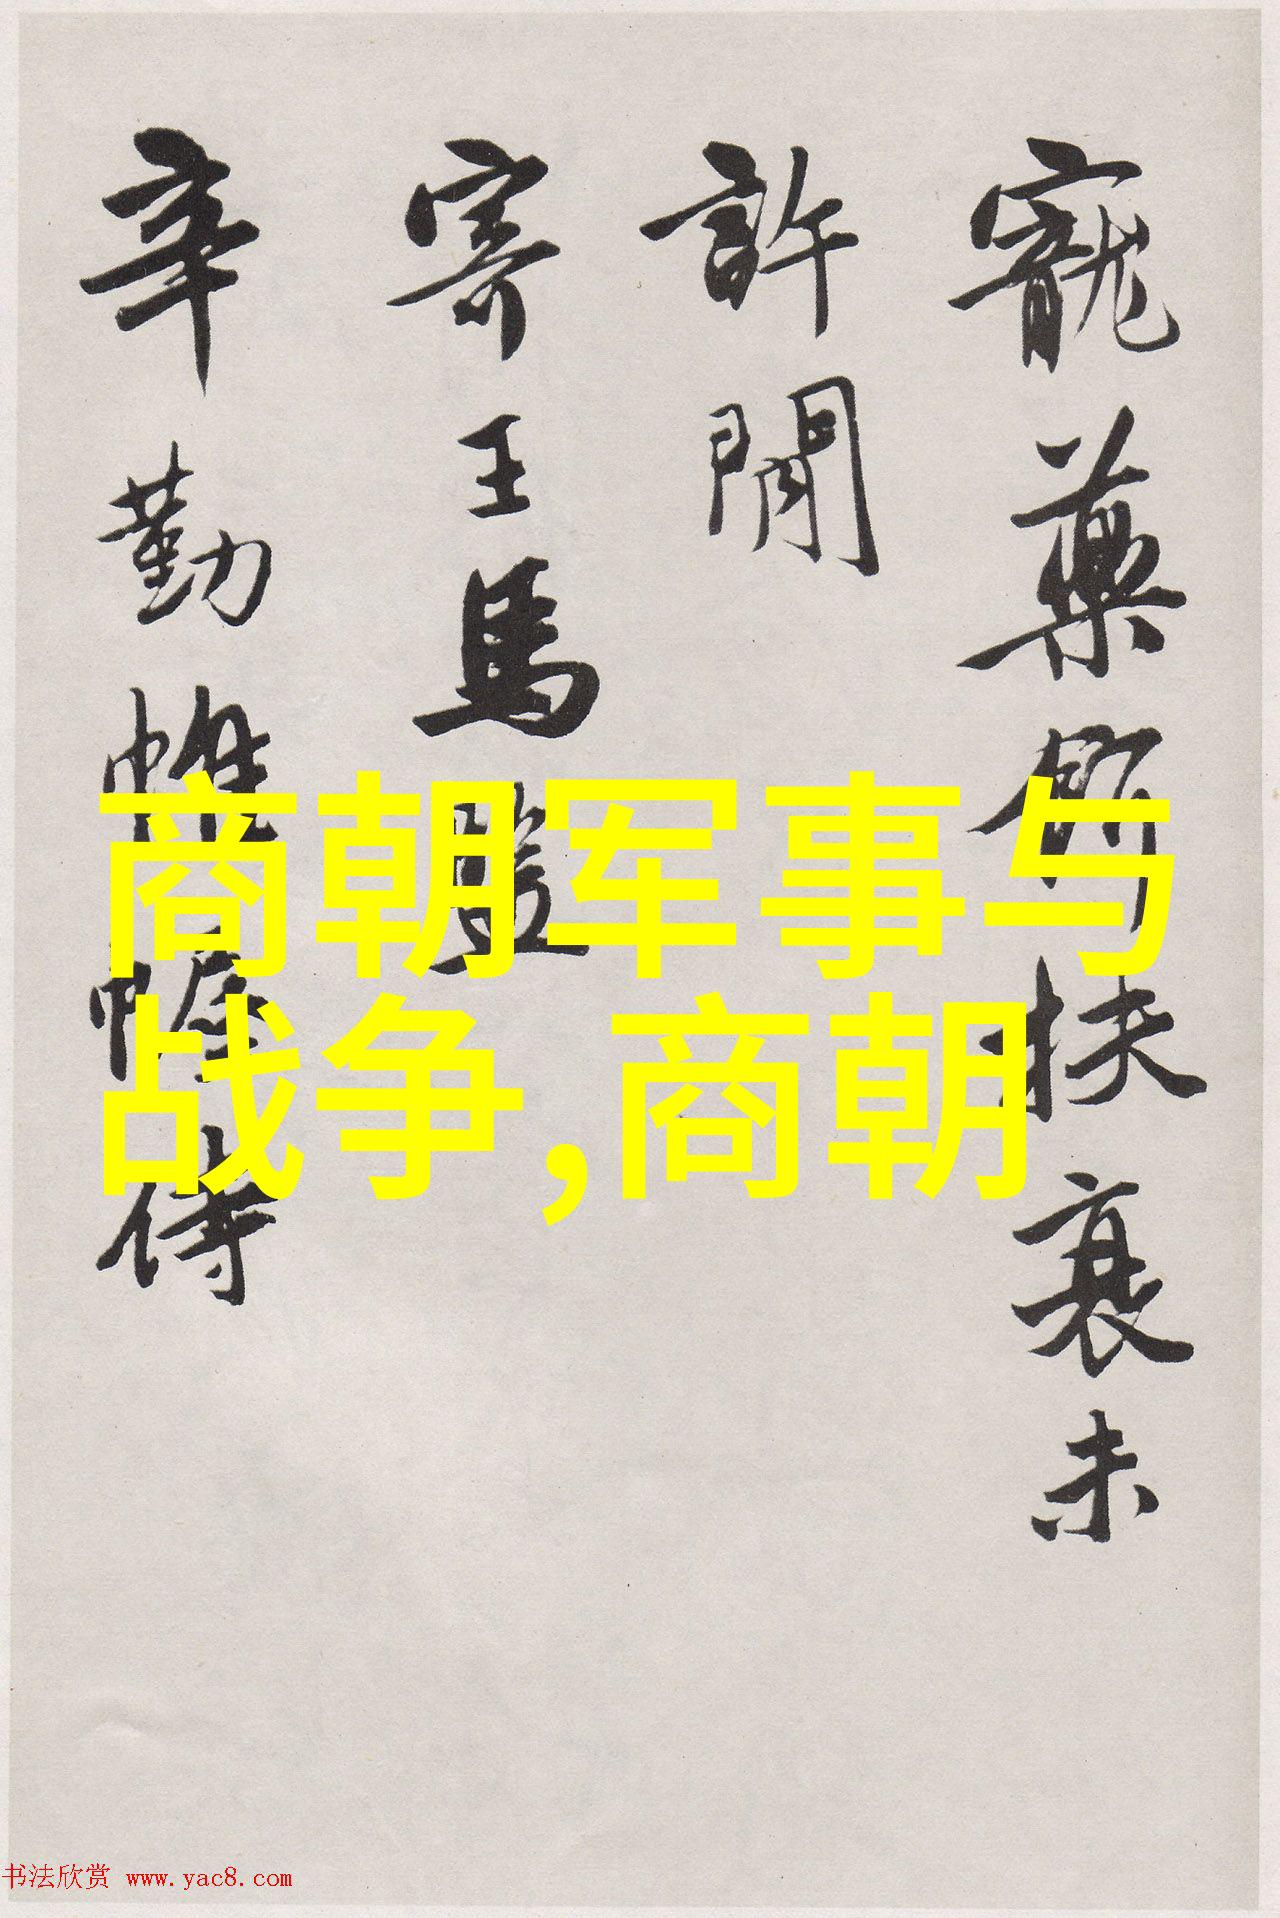 寵藥餌扶衰未
許閒
寄王馬監
辛勤帷幄侍
商朝军事与
战争,商朝
书法欣赏 www.yac8.com